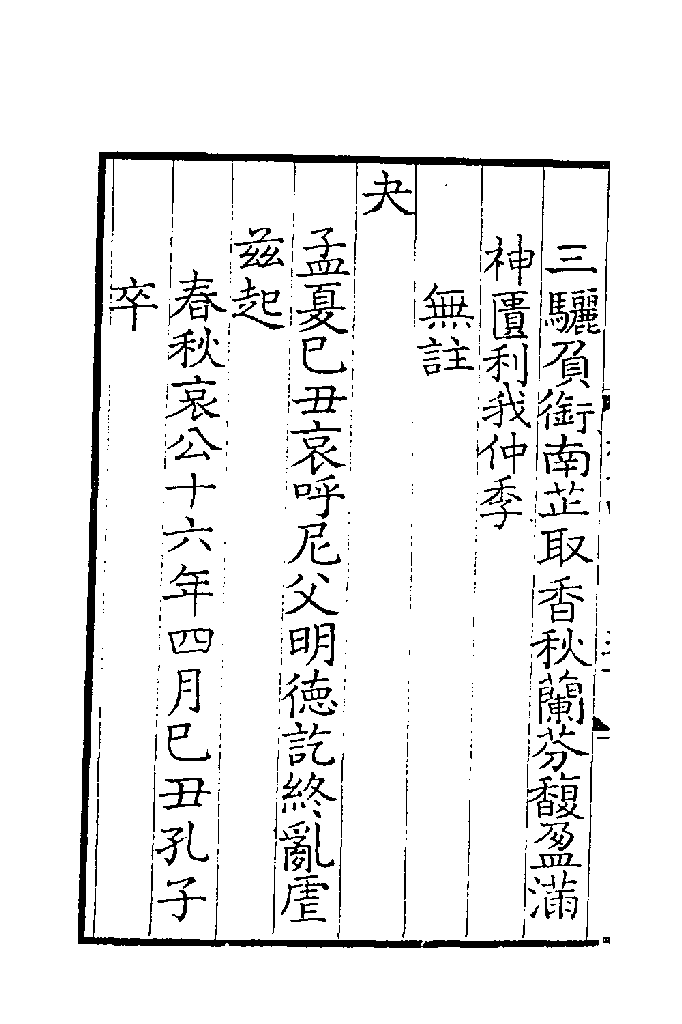 三驪負銜南芷取香秋蘭芬馥盈滿
神匱利我仲季
無註
夬
孟夏巳丑哀呼尼父明德訖終亂虐
兹起
春秋哀公十六年四月巳丑孔子
卒